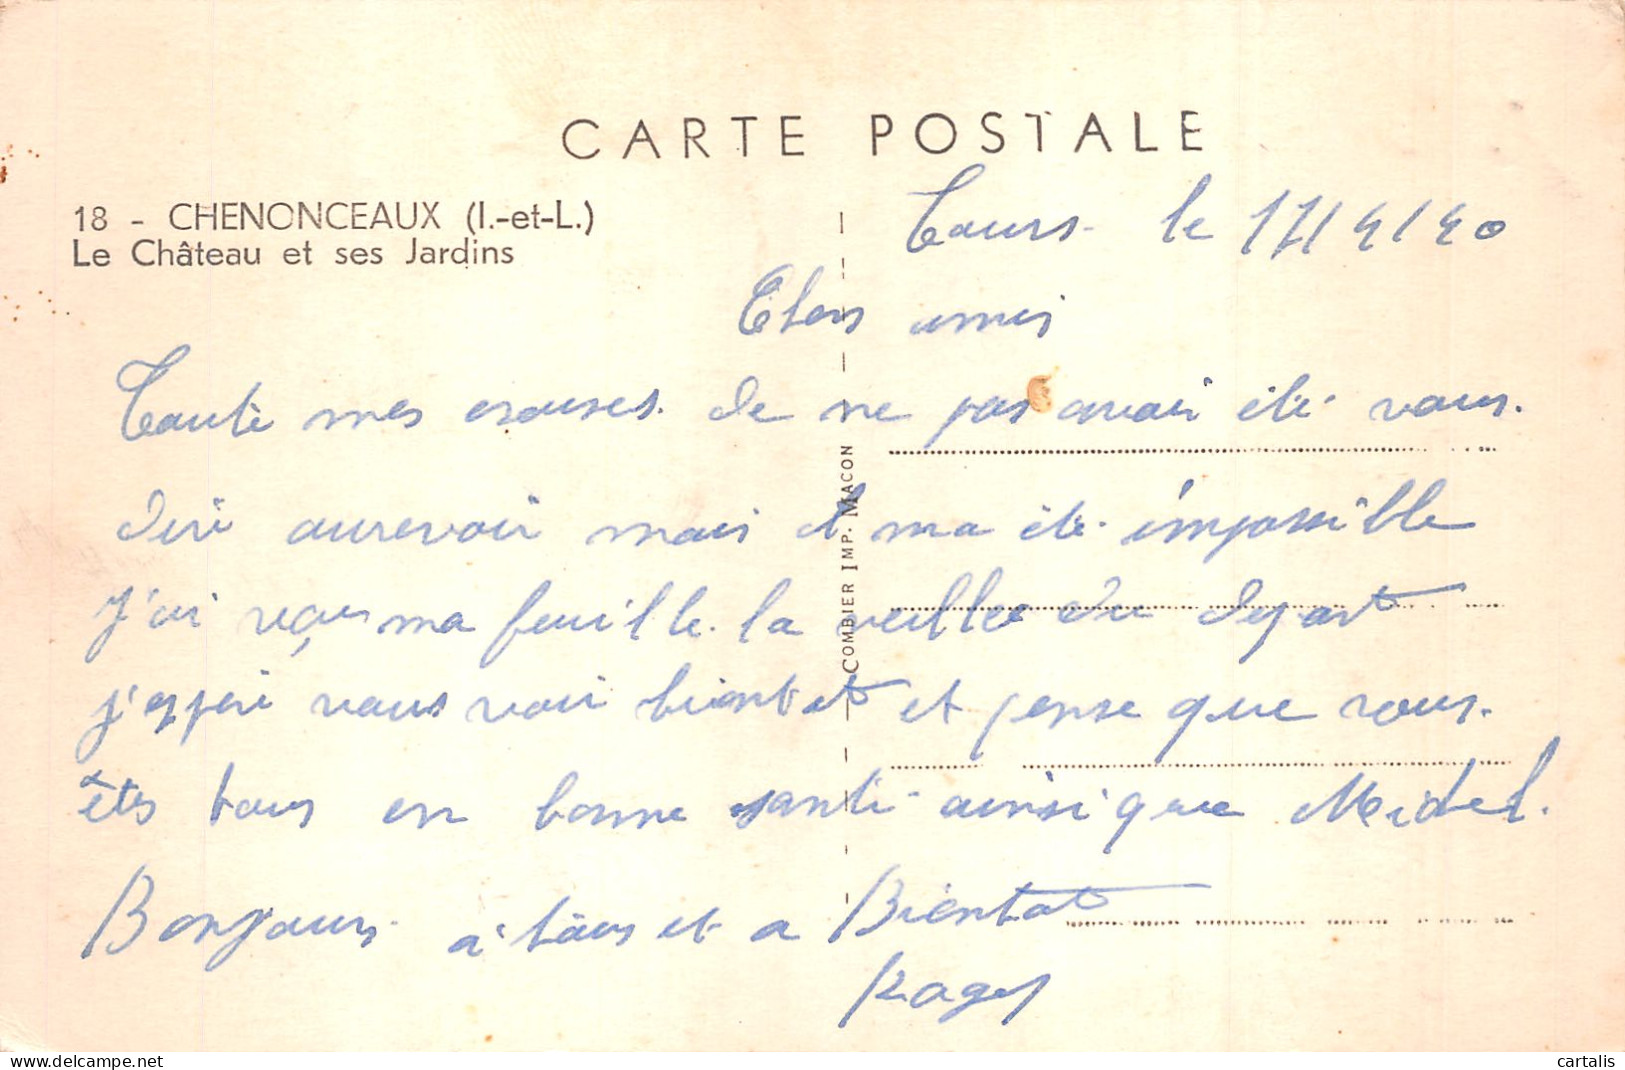 CARTE POSTALE
18 - CHENONCEAUX (I.-et-L.)
Le Château et ses Jardins
COMBIER IMP. MACON
Tours. le 17/4/40
Chers amis
Toute mes excuses. de ne pas avoir été vous.
dire aurevoir mais il ma été impossible
J'ai reçus ma feuille. la veille du depart
j'espere vous voir bientot et pense que vous.
êtes tous en bonne santé ainsi que Michel.
Bonjours. a tous et a Bientot
Roger
cartalis